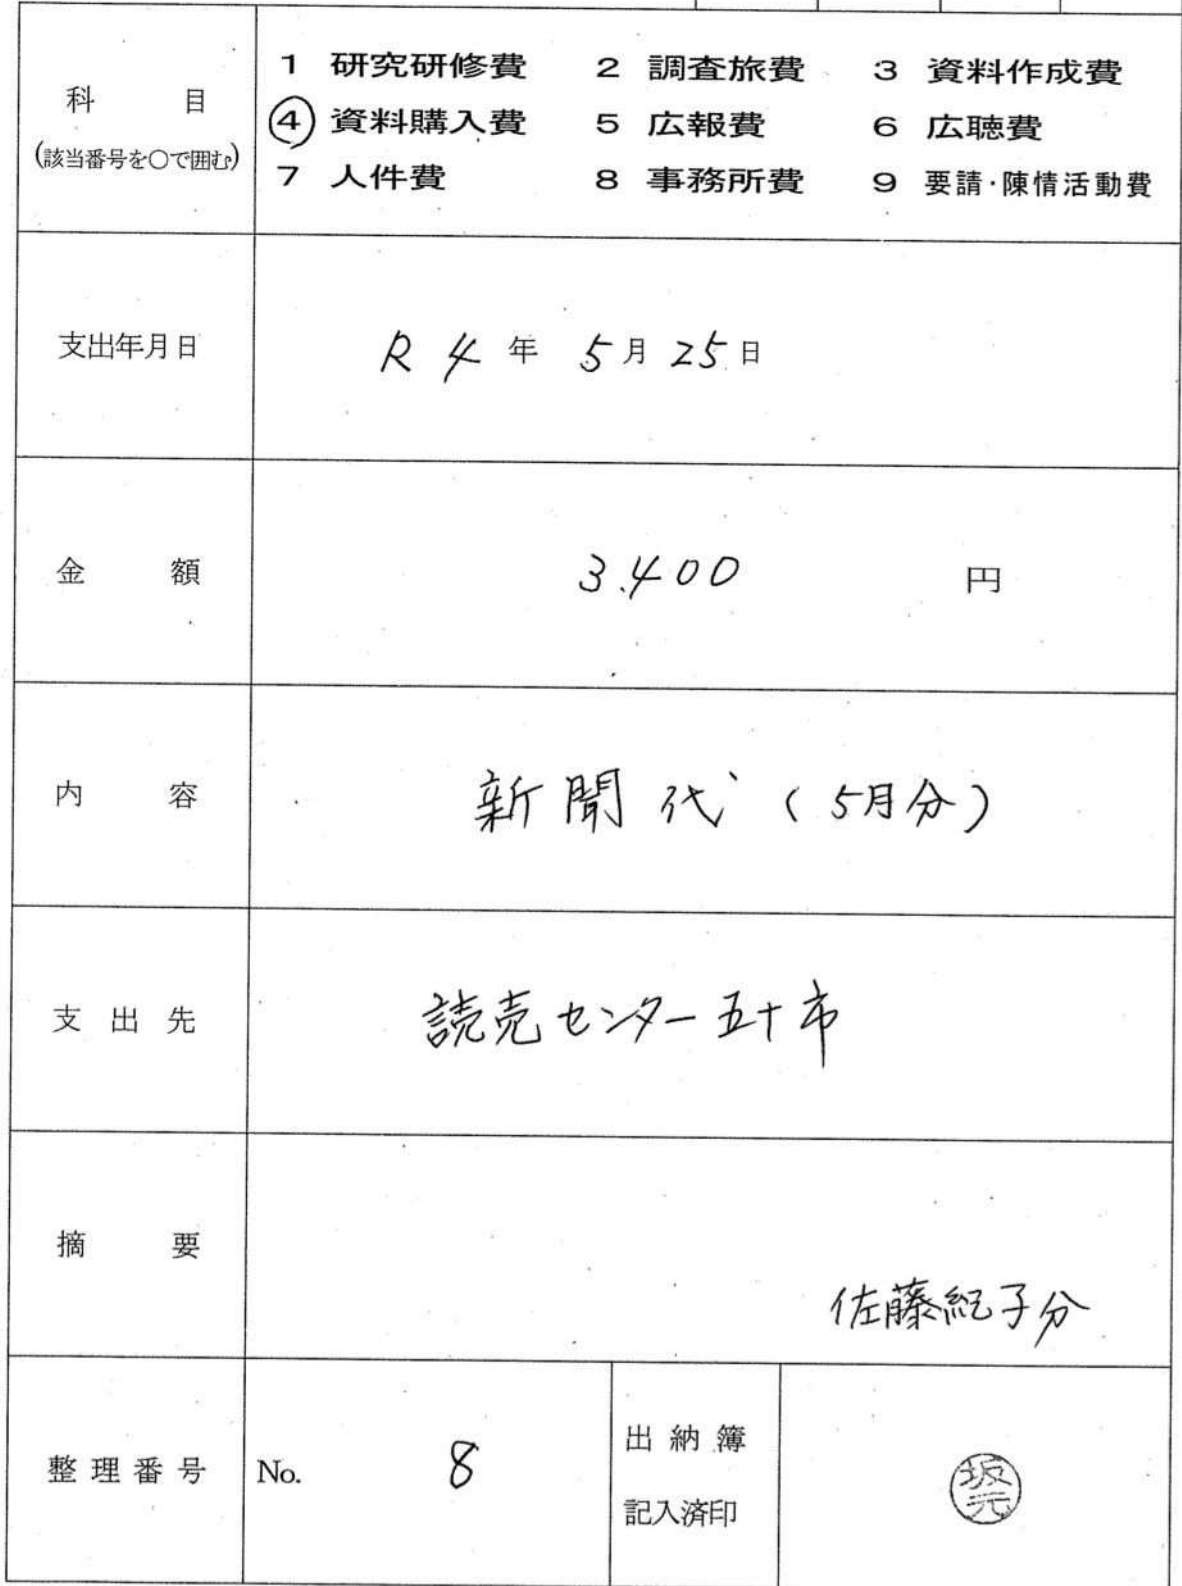 科 目
(該当番号を○で囲む)
1 研究研修費 2 調査旅費 3 資料作成費
④ 資料購入費 5 広報費 6 広聴費
7 人件費 8 事務所費 9 要請・陳情活動費
支出年月日 R4年 5月25日
金 額 3.400 円
内 容 新聞代(5月分)
支 出 先 読売センター五十市
摘 要
佐藤紀子分
整理番号 No. 8
出納簿
記入済印
坂元